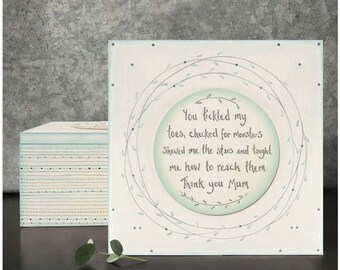 You tickled my
toes, checked for monsters
Showed me the stars and taught
me how to reach them
Thank you Mum